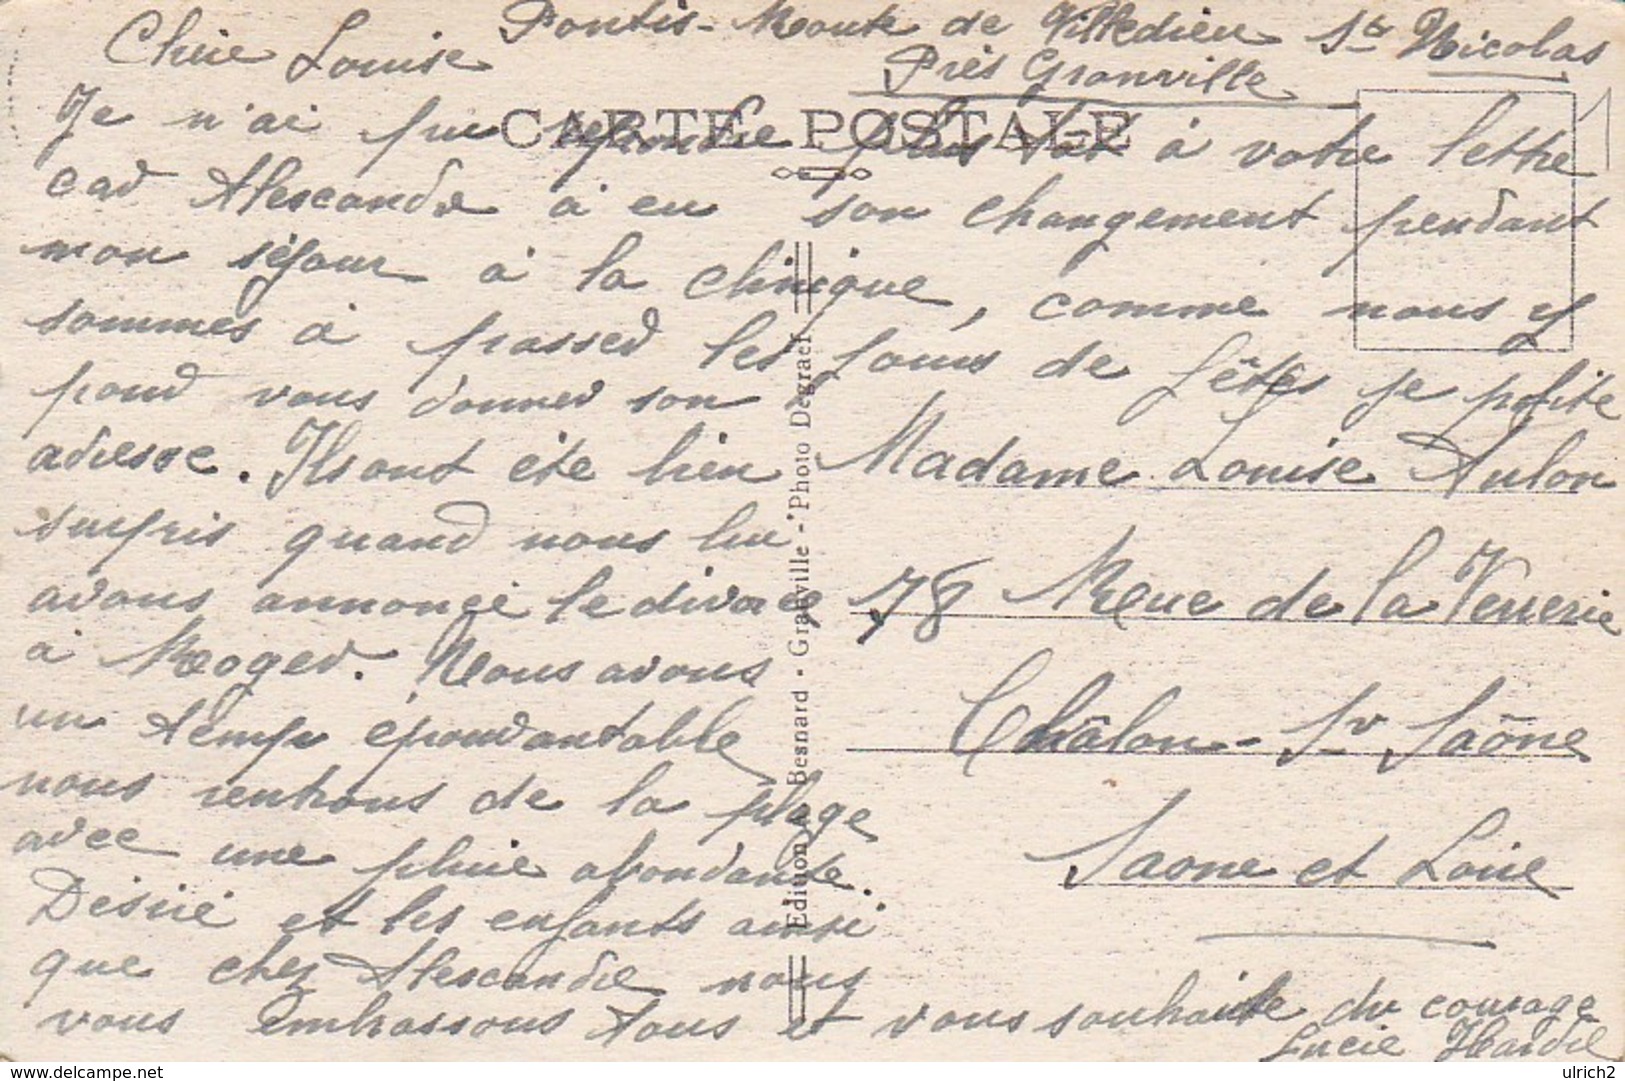 Pontis - Route de Villedieu St Nicolas
Près Granville
Chère Louise
CARTE POSTALE
Je n'ai pu répondre plus tôt à votre lettre
car Alexandre à eu son changement pendant
mon séjour à la clinique, comme nous y
sommes à passer les jours de fêtes je profite
pour vous donner son
adresse. Ils ont été bien
surpris quand nous lui
avons annonçé le divorce
à Roger. Nous avons
un temps épouvantable
nous rentrons de la plage
avec une pluie abondante.
Désiré et les enfants ainsi
que chez Alexandre nous
vous embrassons tous et vous souhaite du courage
Lucie Hardé
Madame Louise Aulon
78 Rue de la Verrerie
Châlon - Sr Saône
Saone et Loire
Edition Besnard - Granville - Photo Degraef
ulrich2